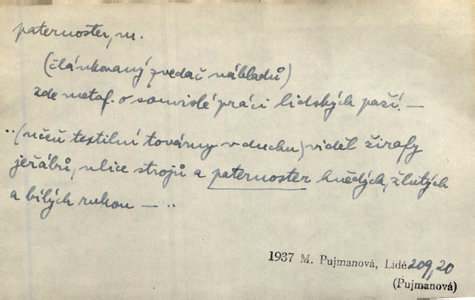 paternoster, m.
(článkovaný zvedač nákladů)
zde metaf. o souvislé práci lidských paží. —
..(učeň textilní továrny v duchu) viděl žirafy
jeřábů, ulice strojů a paternoster hnědých, žlutých
a bílých rukou — ..
1937 M. Pujmanová, Lidé 209,20
(Pujmanová)